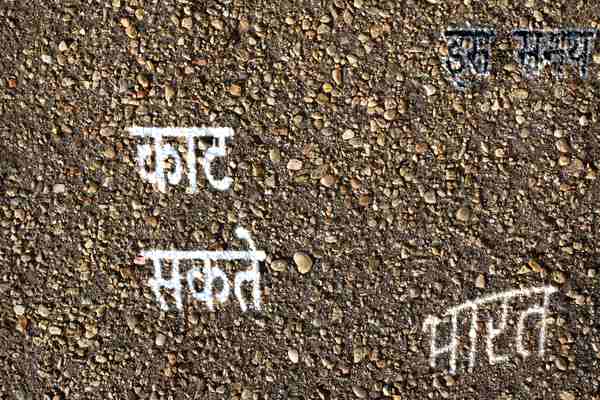 उस समय
काट
सकते
भारत